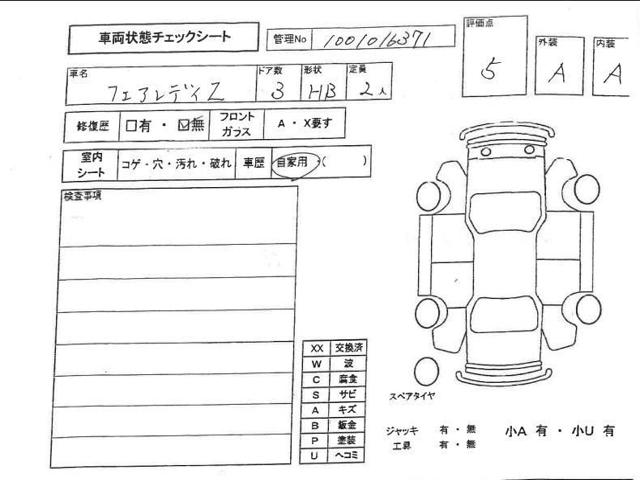 車両状態チェックシート
管理No 1001016371
評価点 5
外装 A
内装 A
車名 フェアレディZ
ドア数 3
形状 HB
定員 2人
修復歴 □有 ・ ☑無
フロントガラス A ・ X要す
室内シート コゲ・穴・汚れ・破れ
車歴 自家用・( )
検査事項
XX 交換済
W 波
C 腐食
S サビ
A キズ
B 鈑金
P 塗装
U ヘコミ
スペアタイヤ
ジャッキ 有・無
工具 有・無
小A 有・小U 有